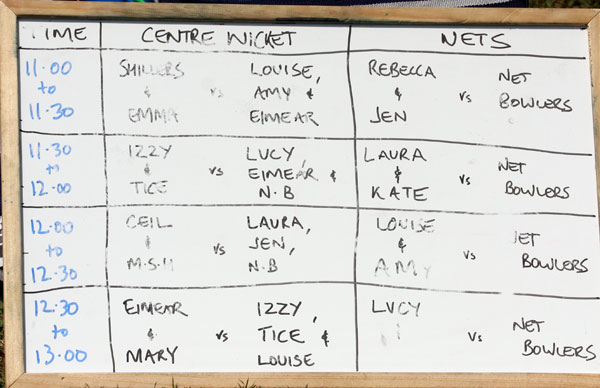 TIME CENTRE WICKET NETS
11.00 SHILLERS LOUISE, REBECCA NET
to & vs AMY & & vs BOWLERS
11.30 EMMA EIMEAR JEN
11.30 IZZY LUCY, LAURA NET
to & vs EIMEAR & & vs BOWLERS
12.00 TICE N.B KATE
12.00 CEIL LAURA, LOUISE NET
to & vs JEN, & vs BOWLERS
12.30 M.S.H N.B AMY
12.30 EIMEAR IZZY, LUCY
to & vs TICE & vs NET
13.00 MARY LOUISE BOWLERS